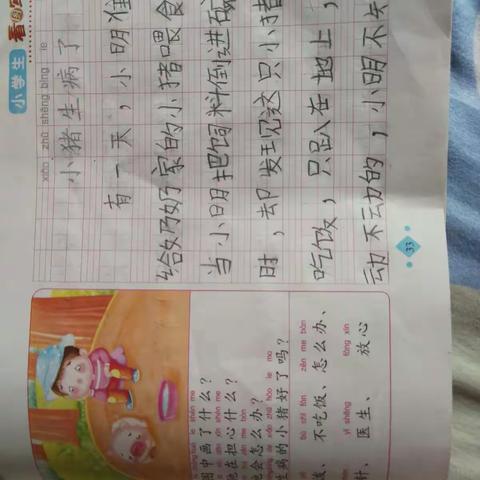 小学生 看
xiǎo zhū shēng bìng le
小猪生病了
有一天，小明准
给奶奶家的小猪喂食
当小明把饲料倒进
时，却发现这只小猪
吃饭，只趴在地上，
动不动的，小明不
33
图中画了什么？
在担心什么？
会怎么办？
生病的小猪好了吗？
bù chī fàn zěn me bàn
、不吃饭、怎么办、
yī shēng fàng xīn
针、医生、放心